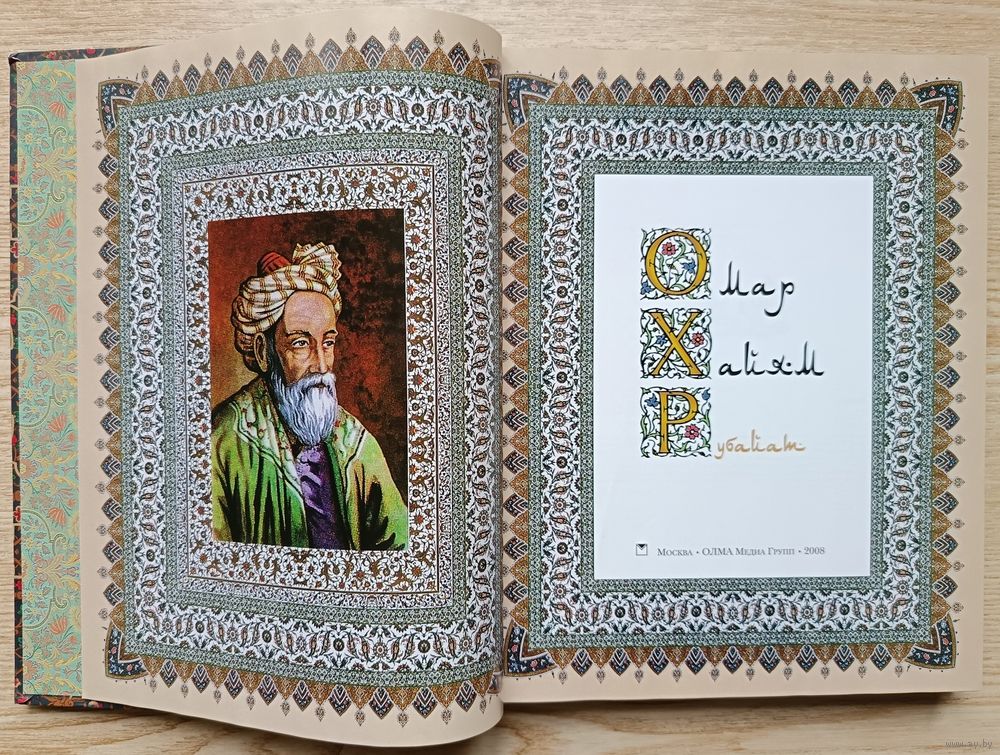 Омар
Хайям
Рубайат
Москва • ОЛМА Медиа Групп • 2008
www.ay.by